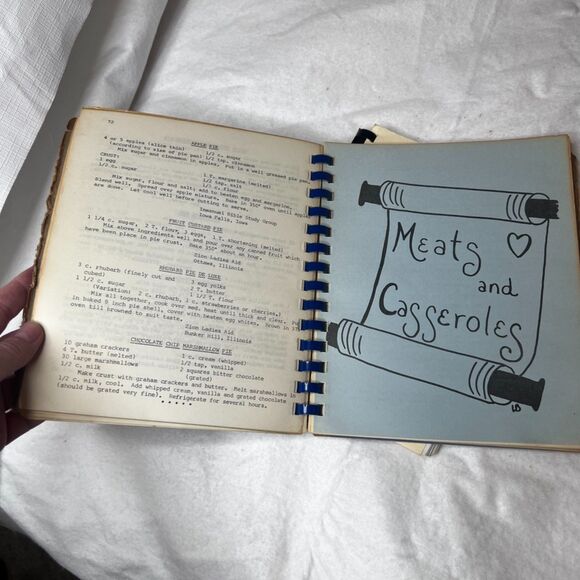 72
APPLE PIE
4 or 5 apples (slice thin) 1/2 c. sugar
(according to size of pie pan) 1/2 tsp. cinnamon
Mix sugar and cinnamon in apples. Put in a well greased pie pan.
CRUST:
1 egg 1 T. margarine (melted)
1/2 c. sugar 1/2 tsp. salt
1/2 c. flour
Mix sugar, flour and salt; add to beaten egg and margarine.
Blend well. Spread over apple mixture. Bake in 350° oven until apples
are done. Let cool well before cutting to serve.
Immanuel Bible Study Group
Iowa Falls, Iowa
FRUIT CUSTARD PIE
1 1/4 c. sugar, 2 T. flour, 3 eggs, 1 T. shortening (melted)
Mix above ingredients well and pour over any canned fruit which
have been place in pie crust. Bake 350° about an hour.
Zion Ladies Aid
Ottawa, Illinois
RHUBARB PIE DE LUXE
3 c. rhubarb (finely cut and 3 egg yolks
cubed) 2 T. butter
1 1/2 c. sugar 1 1/2 T. flour
(Variation: 2 c. rhubarb, 1 c. strawberries or cherries.)
Mix all together, cook over med. heat until thick and clear. Put
in baked 8 inch pie shell, cover with beaten egg whites. Brown in
oven till browned to suit taste.
Zion Ladies Aid
Bunker Hill, Illinois
CHOCOLATE CHIP MARSHMALLOW PIE
10 graham crackers 1 c. cream (whipped)
4 T. butter (melted) 1/2 tsp. vanilla
30 large marshmallows 2 squares bitter chocolate
1/2 c. milk (grated)
Make crust with graham crackers and butter. Melt marshmallows in
1/2 c. milk, cool. Add whipped cream, vanilla and grated chocolate
(should be grated very fine). Refrigerate for several hours.
* * * * *
Meats
and
Casseroles